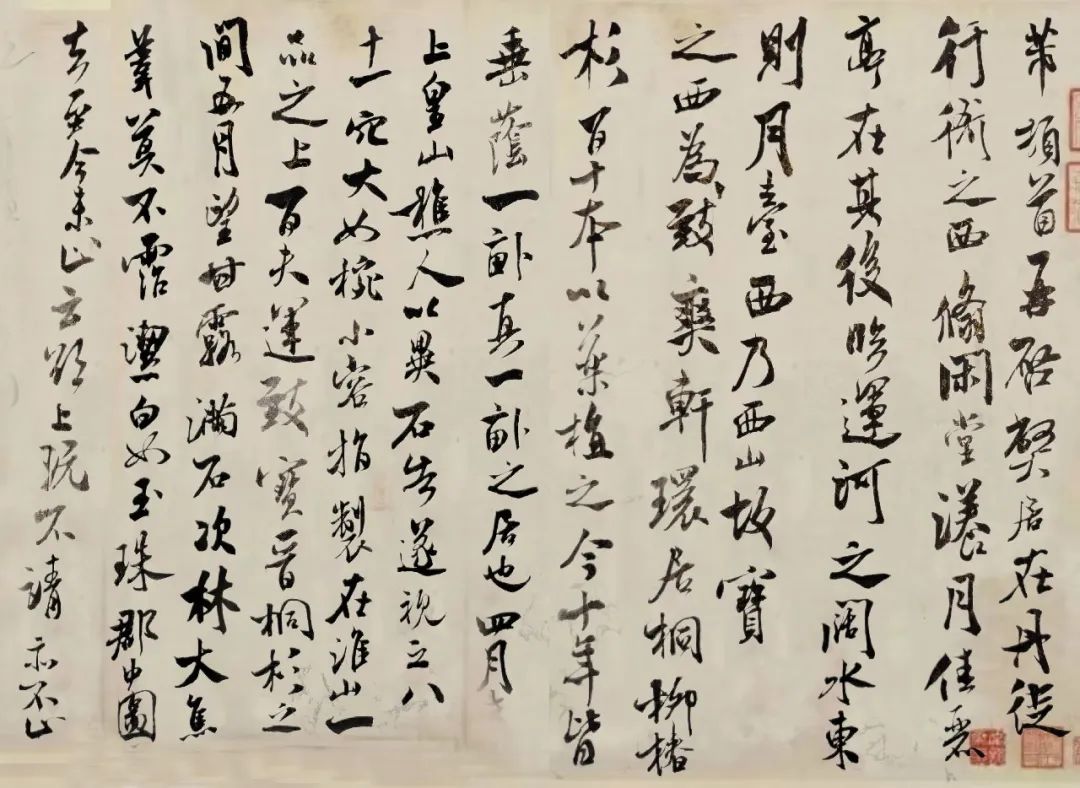 芾頓首再啓弊居在丹徒
行衙之西翛閑堂漾月佳麗
亭在其後臨運河之闊水東
則月臺西乃西山故寶
之西為致爽軒環居桐柳椿
杉百十本以藥植之今十年皆
垂蔭一畝真一畝之居也四月
上皇山樵人以異石告遂視之八
十一穴大如椀小容指製在淮山一
品之上百夫運致寶晉桐杉之
間五月望甘露滿石次林大焦
葦莫不霑潔白如玉珠郡中圖
去至今未止云欲上既不請亦不止